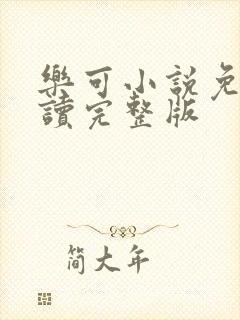 樂可小說免
讀完整版
简大年